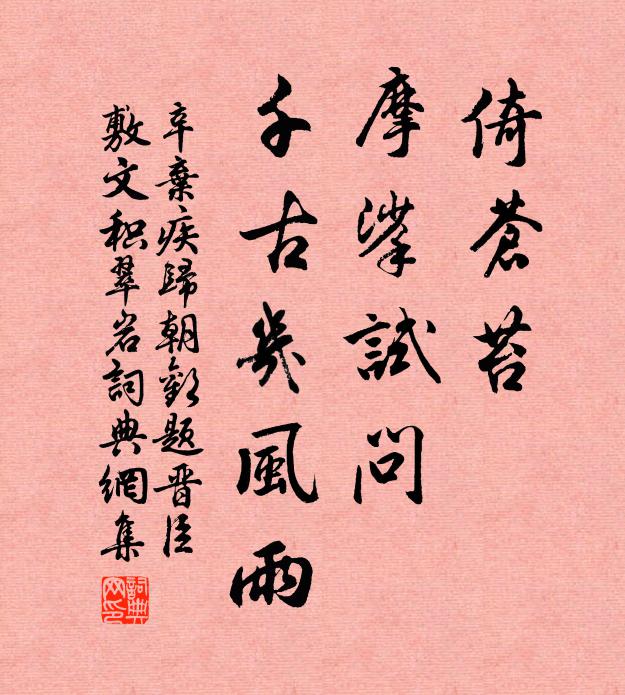 倚蒼苔
摩挲試問
千古幾風雨
辛棄疾歸朝歡題晋臣
敷文积翠岩詞典網集
詞典网印